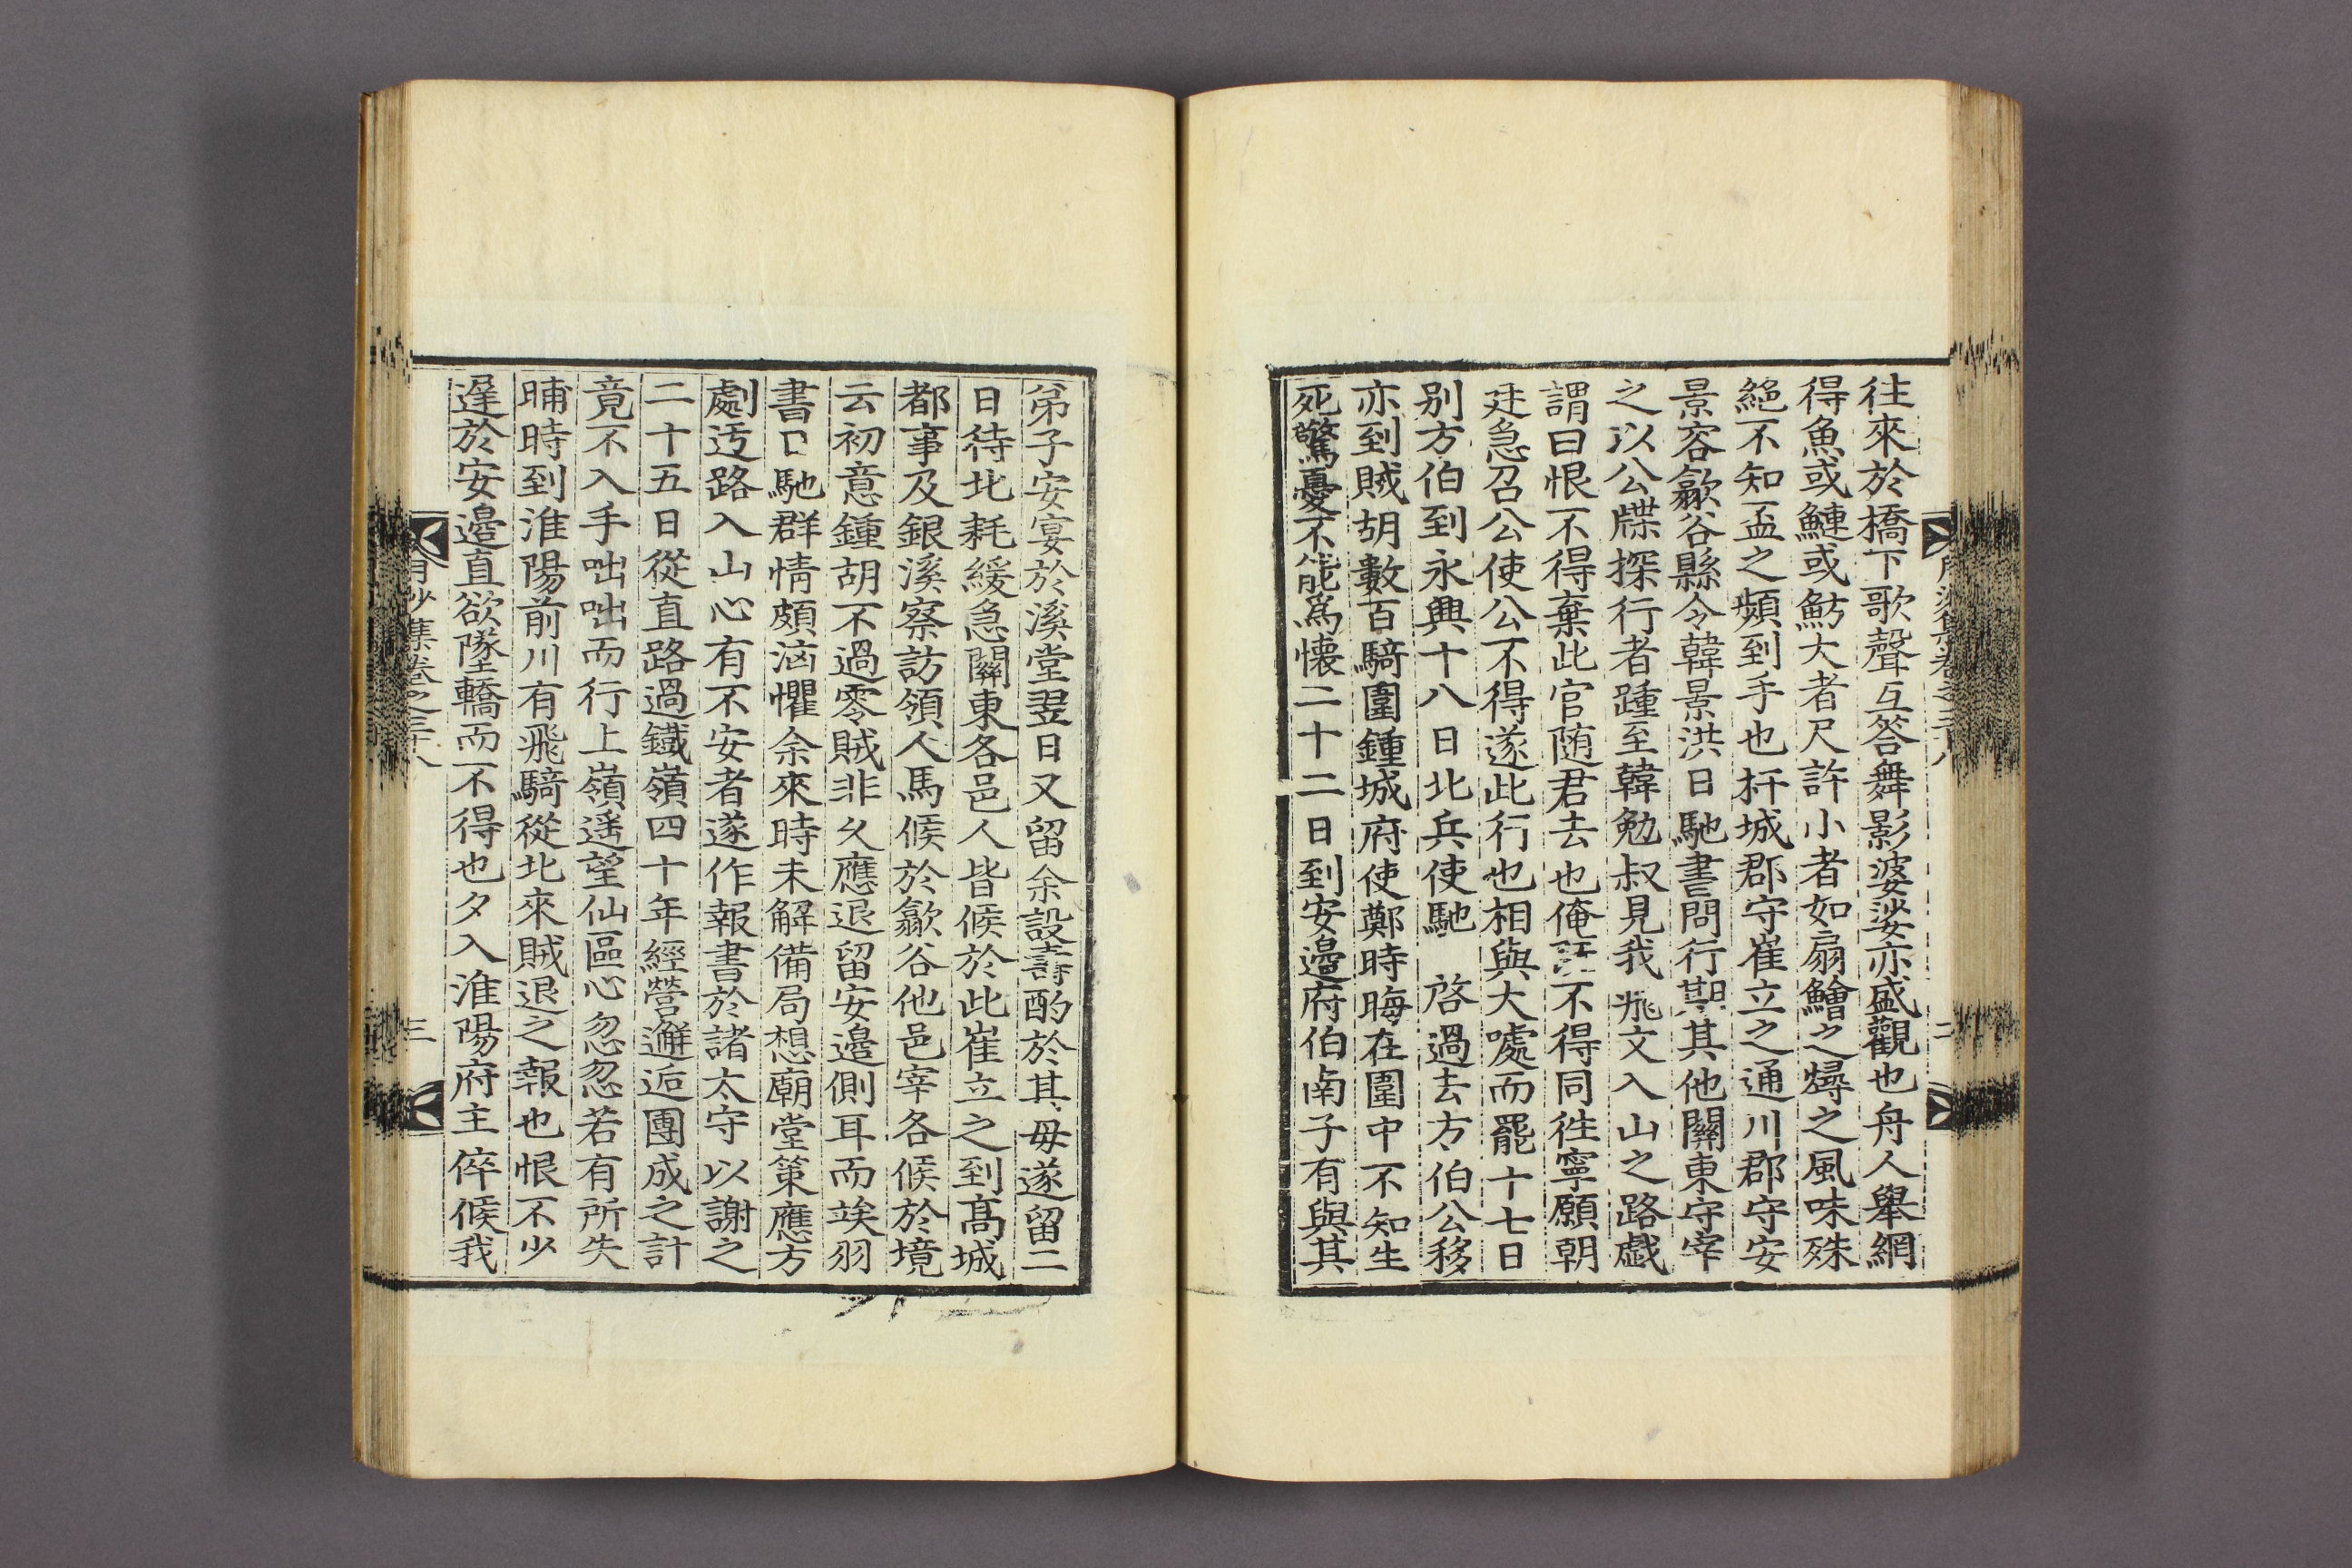 徃來於橋下歌聲互答舞影婆娑亦盛觀也舟人舉網
得魚或鰱或魴大者尺許小者如扇鱠之燖之風味殊
絕不知盃之頻到手也杆城郡守崔立之通川郡守安
景容歙谷縣令韓景洪日馳書問行期其他關東守宰
之以公牒探行者踵至韓勉叔見我飛文入山之路戱
謂曰恨不得棄此官随君去也俺不得同徃寧願朝
廷急召公使公不得遂此行也相與大噱而罷十七日
别方伯到永興十八日北兵使馳 啓過去方伯公移
亦到賊胡數百騎圍鍾城府使鄭時晦在圍中不知生
死驚憂不能爲懷二十二日到安邊府伯南子有與其
弟子安宴於溪堂翌日又留余設壽酌於其母遂留二
日待北耗緩急關東各邑人皆候於此崔立之到高城
都事及銀溪察訪領人馬候於歙谷他邑宰各候於境
云初意鍾胡不過零賊非久應退留安邊側耳而竢羽
書日馳群情頗洶懼余來時未解備局想廟堂策應方
劇迃路入山心有不安者遂作報書於諸太守以謝之
二十五日從直路過鐵嶺四十年經營邂逅團成之計
竟不入手咄咄而行上嶺遥望仙區心忽忽若有所失
晡時到淮陽前川有飛騎從北來賊退之報也恨不少
遅於安邊直欲墜轎而不得也夕入淮陽府主倅候我
月沙集卷之三十八
三